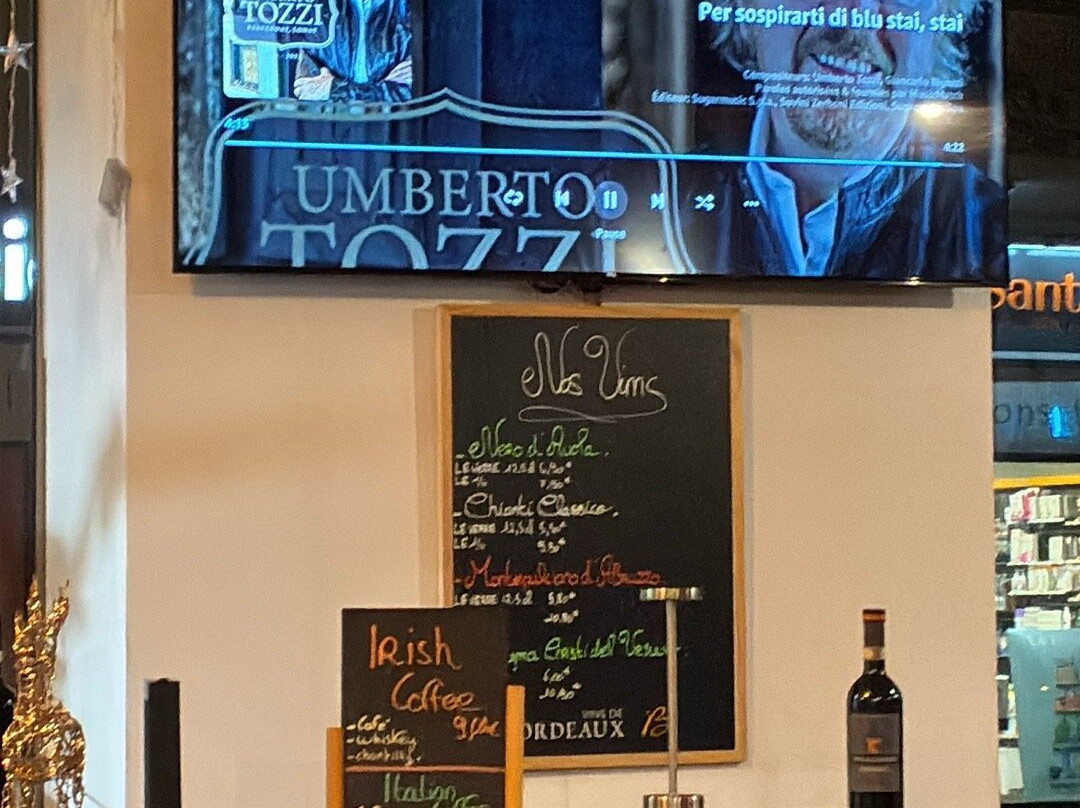 TOZZI
Per sospirarti di blu stai, stai
Compositeurs: Umberto Tozzi, Giancarlo
Paroles autorisées & fournies par
Éditeur: Sugarmusic S.p.a.,
4:22
UMBERTO
TOZZI
Pause
Sant
ops
Nos Vins
- Nero d'Avola.
LE VERRE 12,5 cl 6,90€
LE ¼ 7,50€
- Chianti Classico.
LE VERRE 12,5 cl 5,90€
LE ¼ 9,90€
- Montepulciano d'Abruzzo
LE VERRE 12,5 cl 5,80€
10,80€
Cristi del Vesuvio
6,00€
10,90€
VINS DE
ORDEAUX B
Irish
Coffee
- Café
- whiskey
- chantilly.
Italian